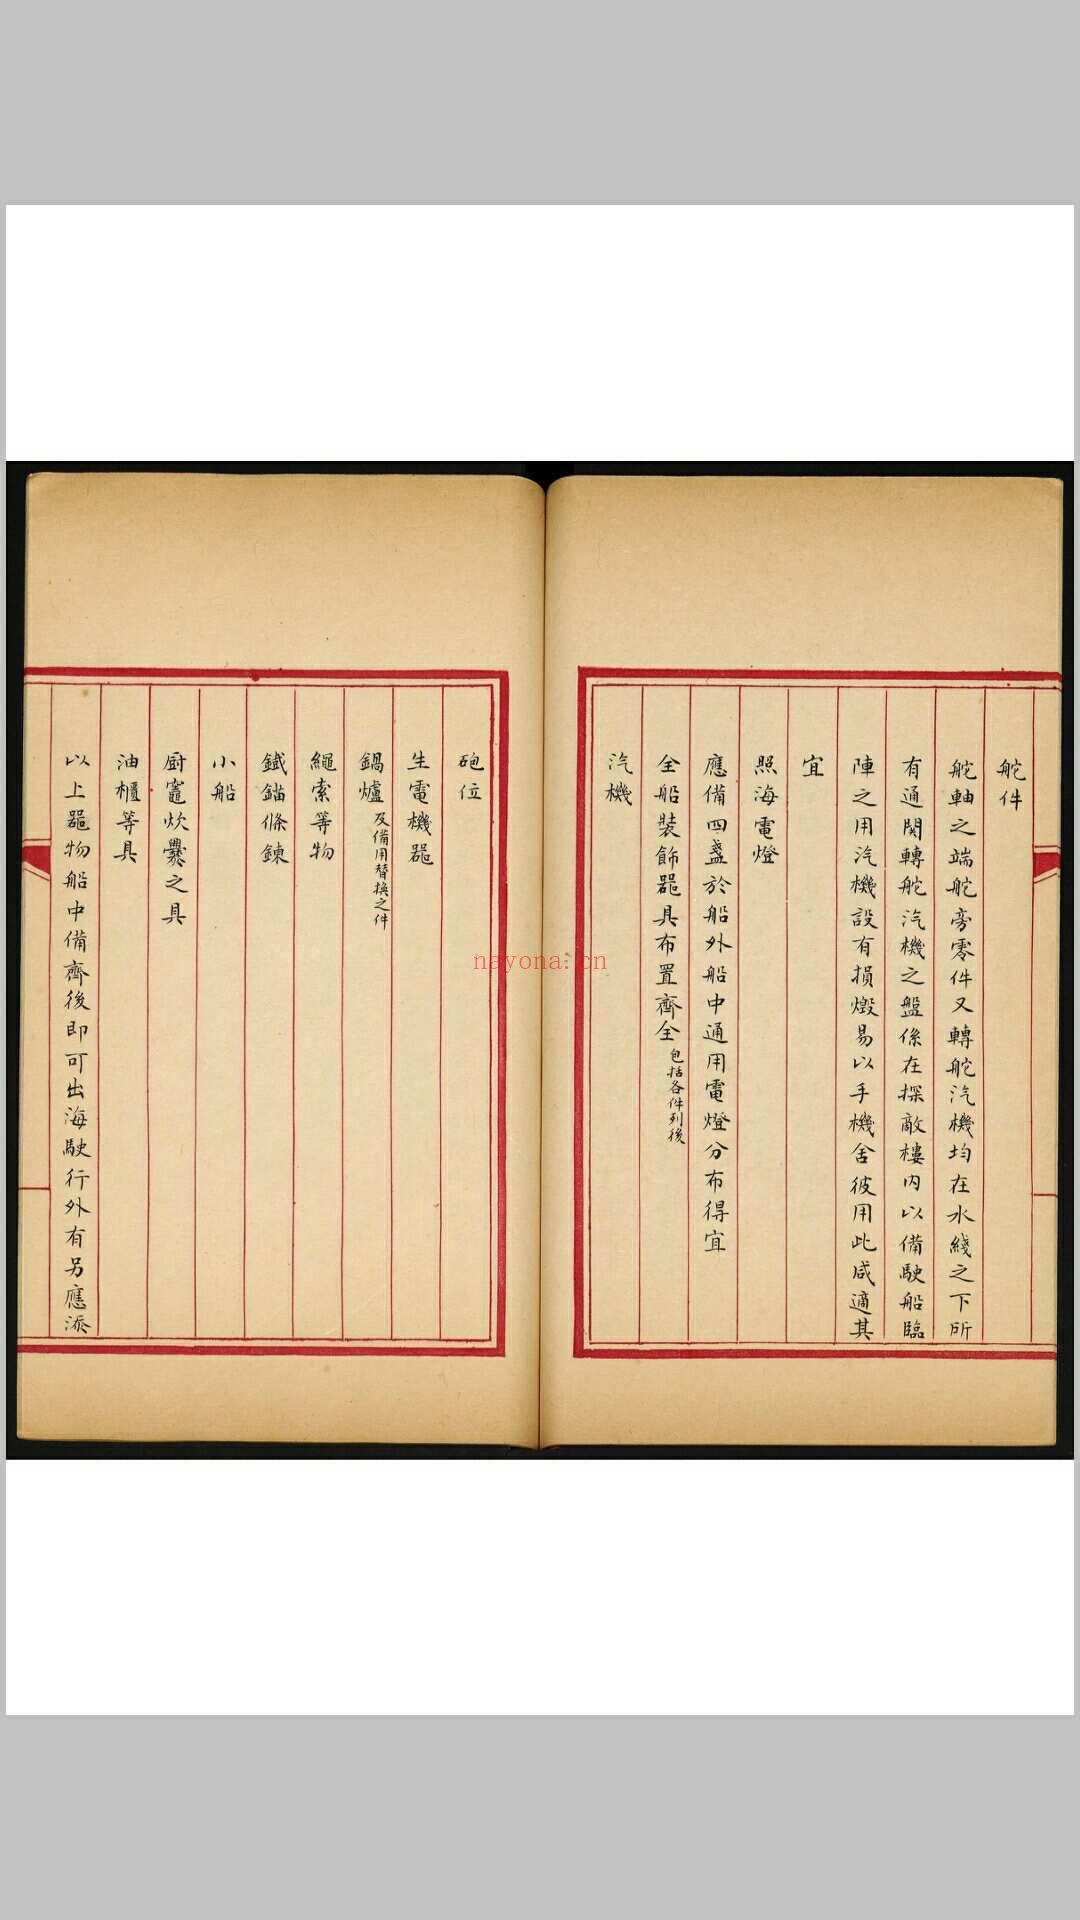 舵件
舵軸之端舵旁零件又轉舵汽機均在水綫之下所
有通関轉舵汽機之盤係在探敵樓内以備駛船臨
陣之用汽機設有損燬易以手機舍彼用此咸適其
宜
照海電燈
應備四盞於船外船中通用電燈分布得宜
全船裝飾噐具布置齊全包括各件列後
汽機
砲位
生電機噐
鍋爐及備用替換之件
繩索等物
鐵錨條鍊
小船
厨竈炊爨之具
油櫃等具
以上噐物船中備齊後即可出海駛行外有另應添
nayona.cn